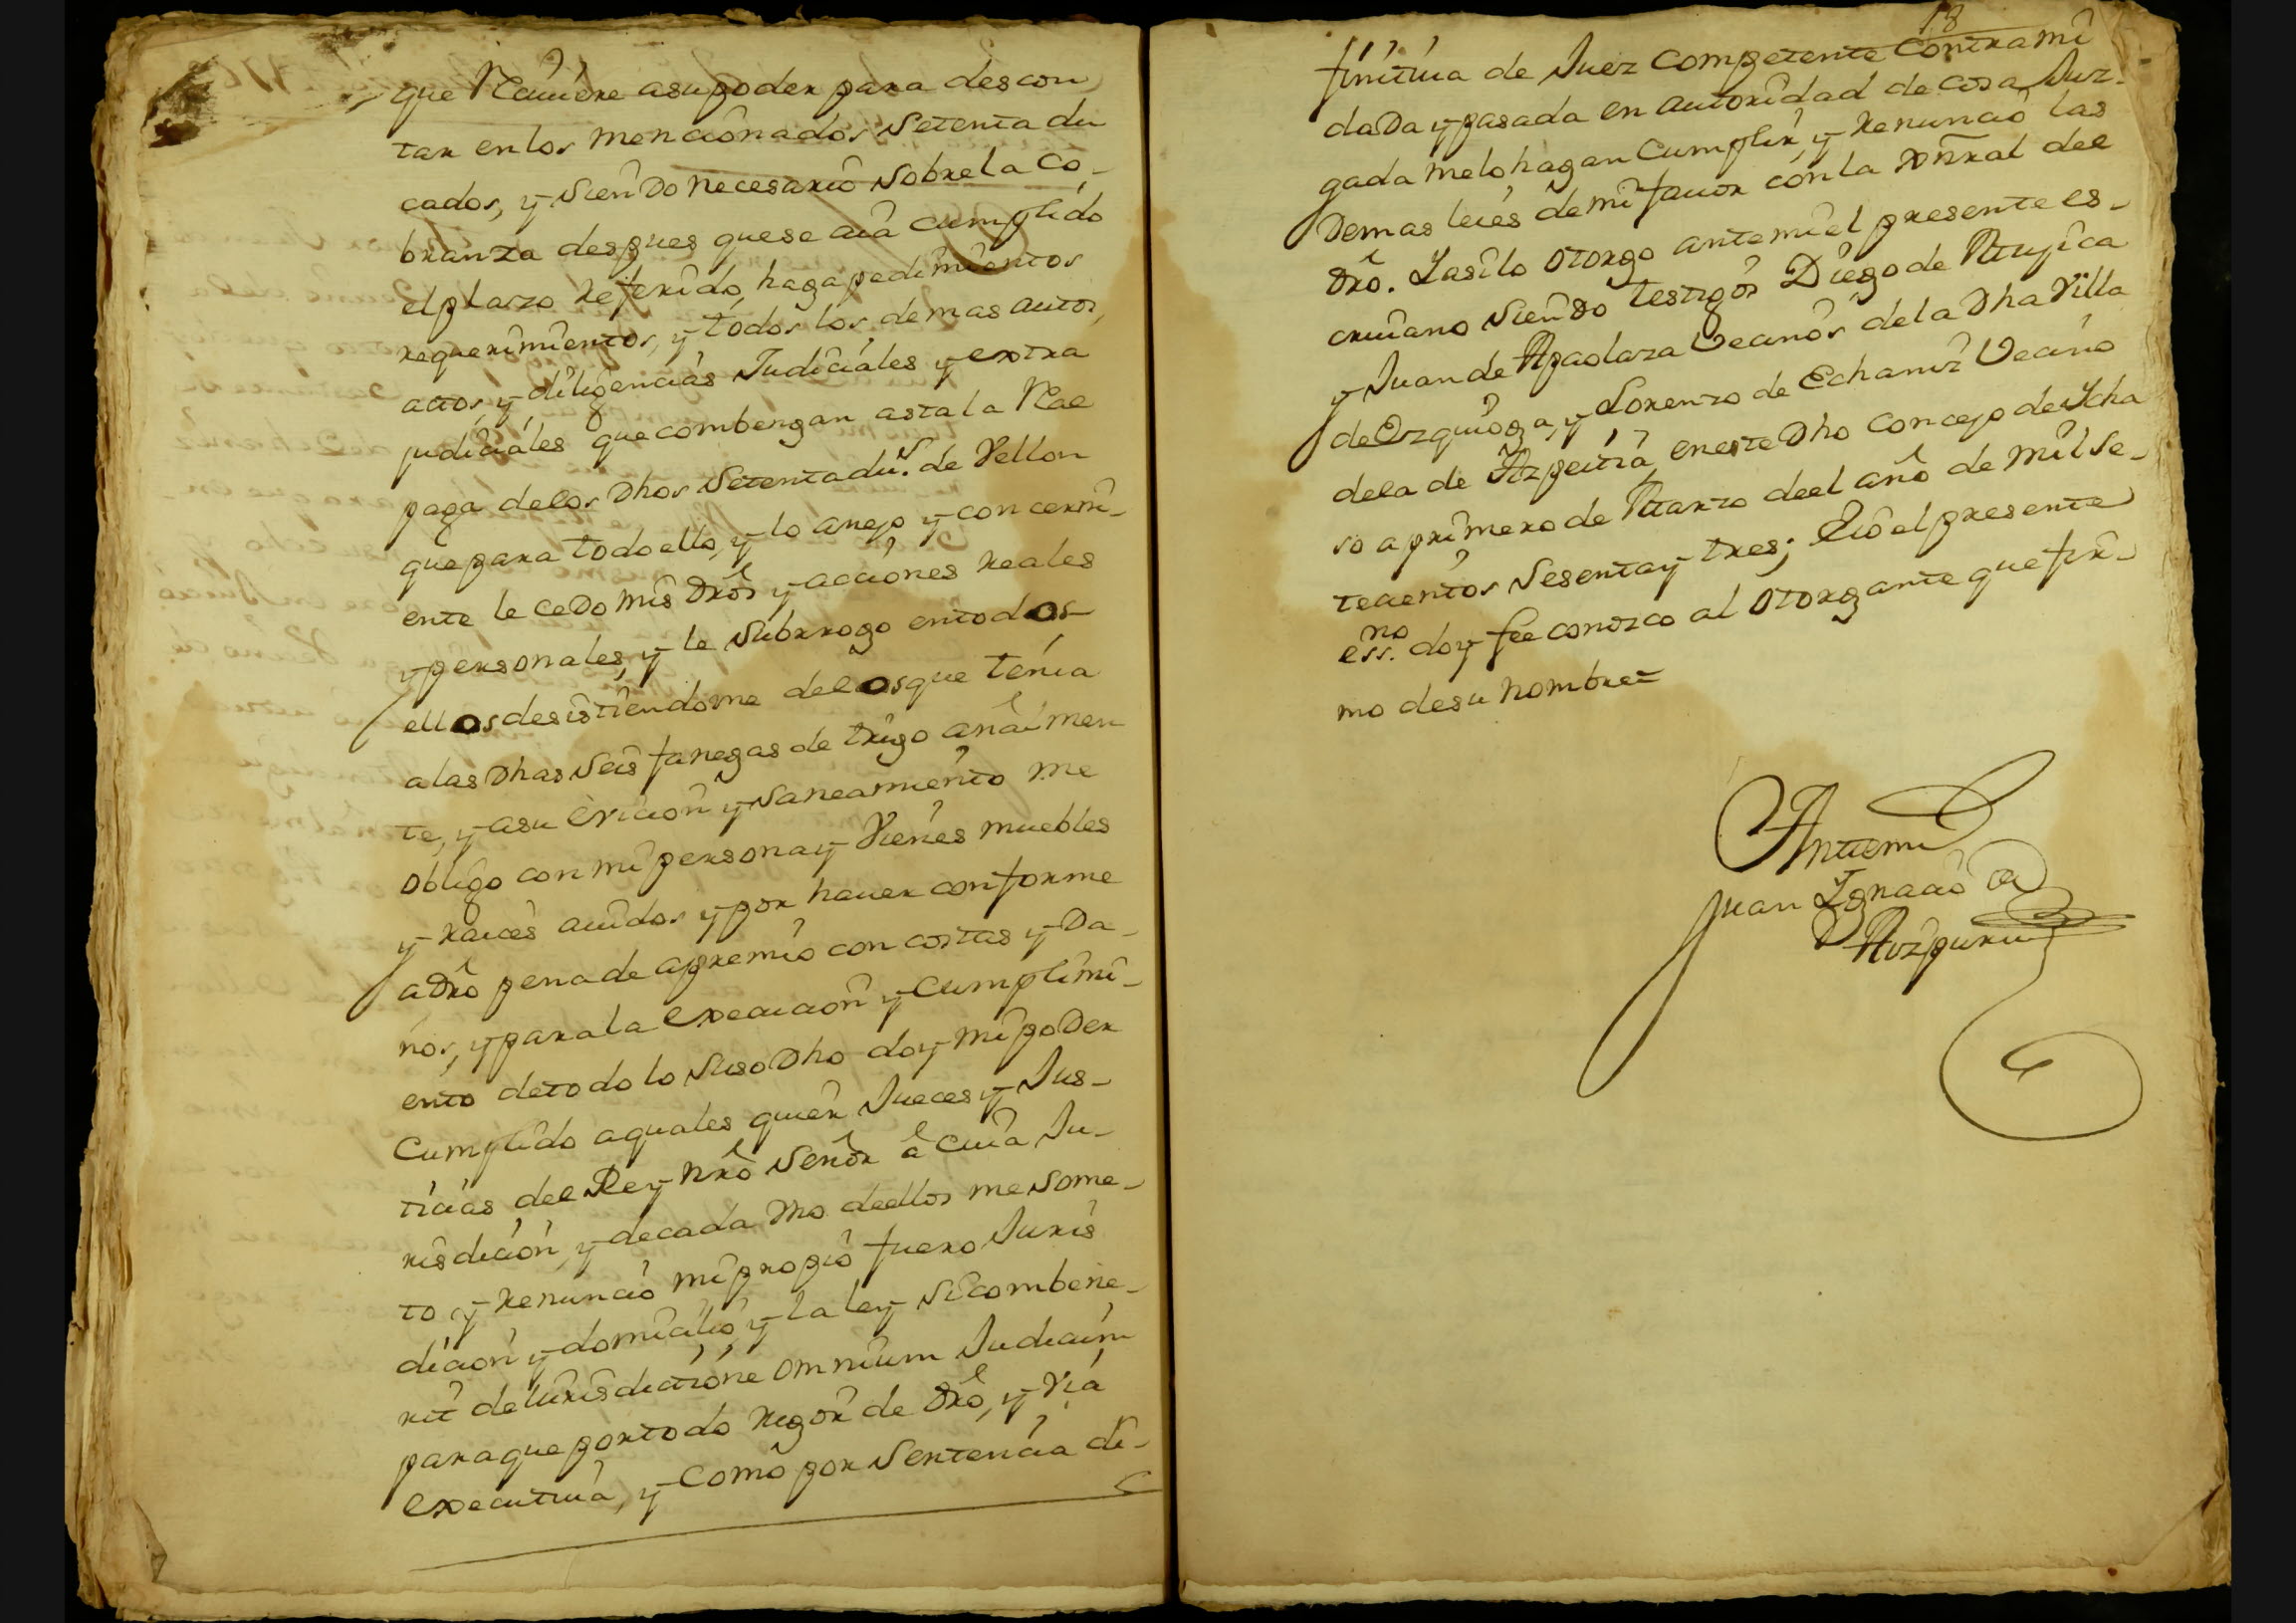 que Rauiere asupoder para descon
tar enlos mencionados Setenta du
cados, y Siendo necesario Sobrela co-
branza despues quese aia cumplido
elplarzo referido, haga pedimientos
requerimientos, y todos los demas autos,
actos, y diligencias Judiciales y extra
judiciales que combengan asta la Rae
paga delos Dhos Setenta du.s de Vellon
quepara todo ello, y lo anejo y concerni-
ente le cedo mis Drôs y acciones reales
y personales, y le Subrrogo entodos
ellos desistiendome delosque tenia
alas Dhas Seis fanegas de trigo añalmen
te, y asu Evicion y Saneamiento me
obligo con mi persona y Vienes muebles
y raices auidos y por hauer conforme
a Drô pena de apremio con costas y Da-
ños, y para la Execucion y cumplimi-
ento detodo lo Suso Dho doy mi poDer
Cumplido aquales quier Jueces y Jus-
ticias del Rey Nrô Señor â cuia Ju-
risdicion, y decada Vno deellos me Some-
to y renuncio mi propio fuero Juris
dicion y domicilio, y la ley Sicombene-
rit deIurisdictione omnium Judicum
paraque portodo rigor de Drô, y Via
executiua, y como por Sentencia di-
18
finitiua de Juez Competente contrami
daDa y pasada en autoridad de cosa Juz-
gada melo hagan Cumplir, y renuncio las
Demas leies demi fauor con la Gñral del
Drô. Yasilo otorgo antemi el presente es-
criuano Siendo testigos Diego de Mujica
y Juan de Apaolaza Vecinos dela Dha Villa
de Ezquioga, y Lorenzo de Echaniz Vecino
dela de Azpeitia eneste Dho Concejo de Ycha
so a primero de Marzo deel año de mil Se-
tecientos Sesenta y tres; Eio el presente
ess.no doy fee conozco al Otorgante que fir-
mo desu nombre=
Antemi
Juan Ygnacio de
Aozpuru